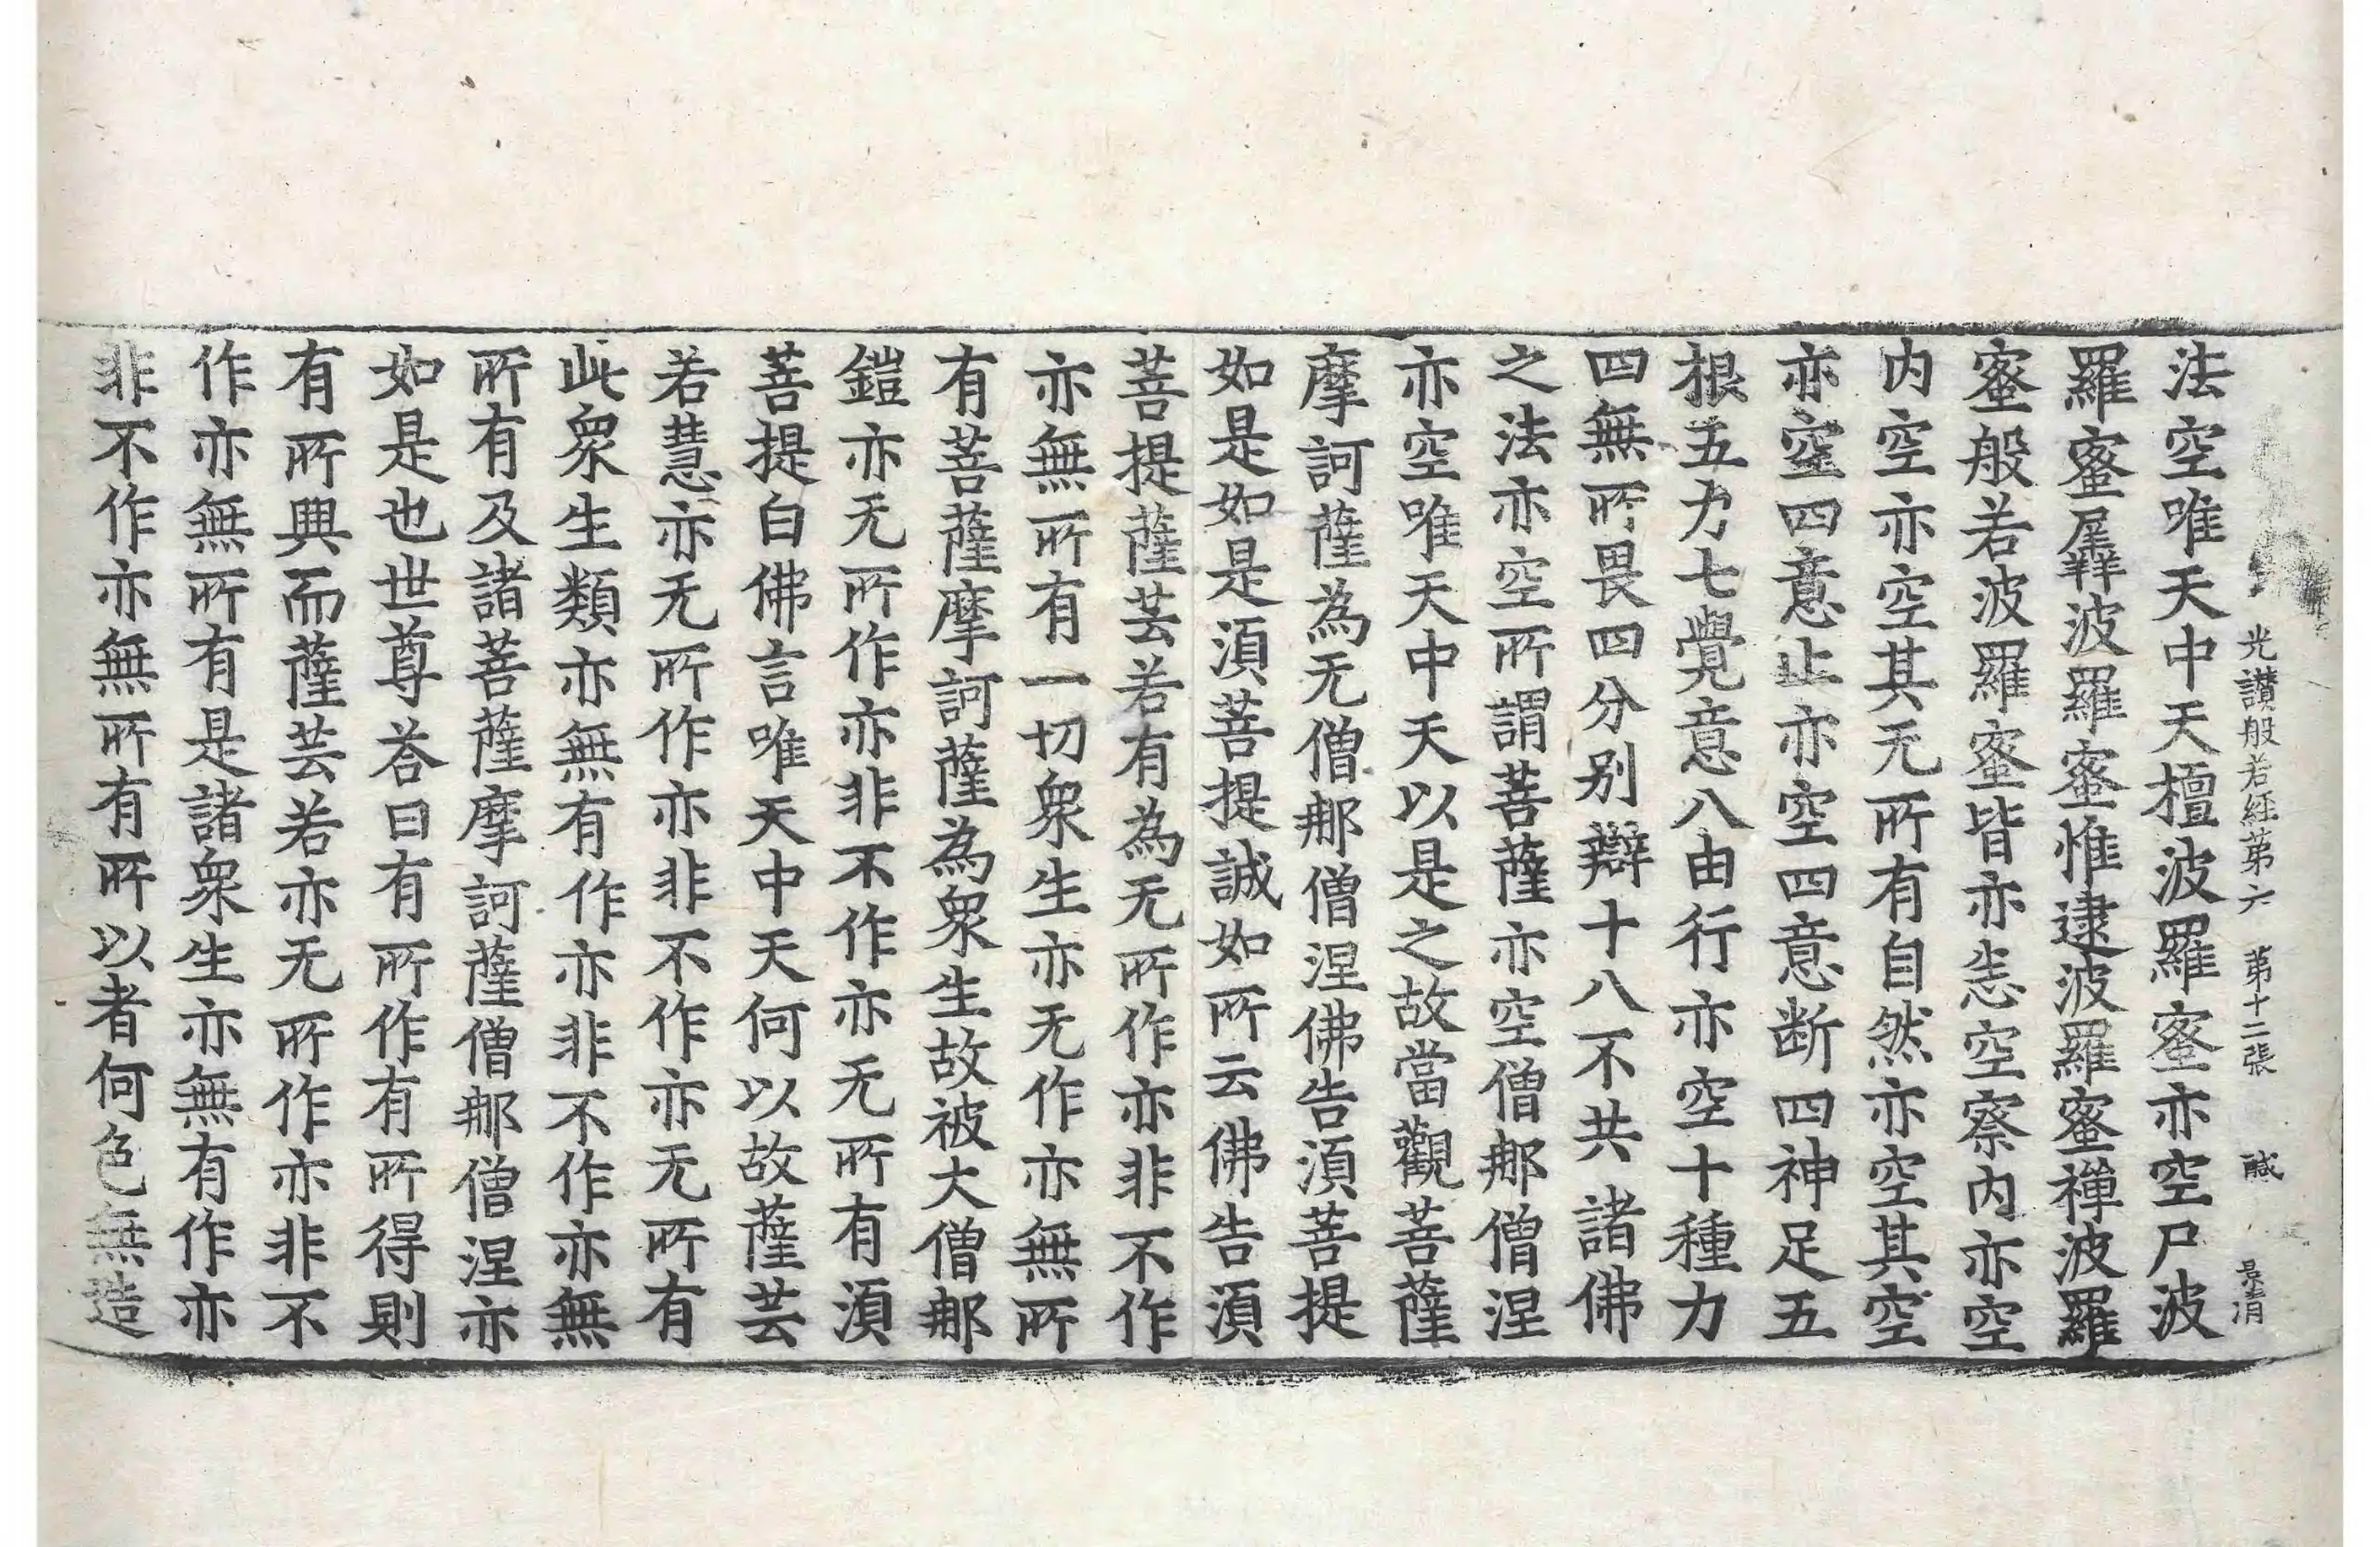 光讃般若経第六 第十二張 醎
法空唯天中天檀波羅蜜亦空尸波
羅蜜羼波羅蜜惟逮波羅蜜禅波羅
蜜般若波羅蜜皆亦悉空察内亦空
内空亦空其无所有自然亦空其空
亦空四意止亦空四意断四神足五
根五力七覺意八由行亦空十種力
四無所畏四分别辯十八不共諸佛
之法亦空所謂菩薩亦空僧那僧涅
亦空唯天中天以是之故當觀菩薩
摩訶薩為无僧那僧涅佛告湏菩提
如是如是湏菩提誠如所云佛告湏
菩提薩芸若有為无所作亦非不作
亦無所有一切衆生亦无作亦無所
有菩薩摩訶薩為衆生故被大僧那
鎧亦无所作亦非不作亦无所有湏
菩提白佛言唯天中天何以故薩芸
若慧亦无所作亦非不作亦无所有
此衆生類亦無有作亦非不作亦無
所有及諸菩薩摩訶薩僧那僧涅亦
如是也世尊荅曰有所作有所得則
有所興而薩芸若亦无所作亦非不
作亦無所有是諸衆生亦無有作亦
非不作亦無所有所以者何色無造